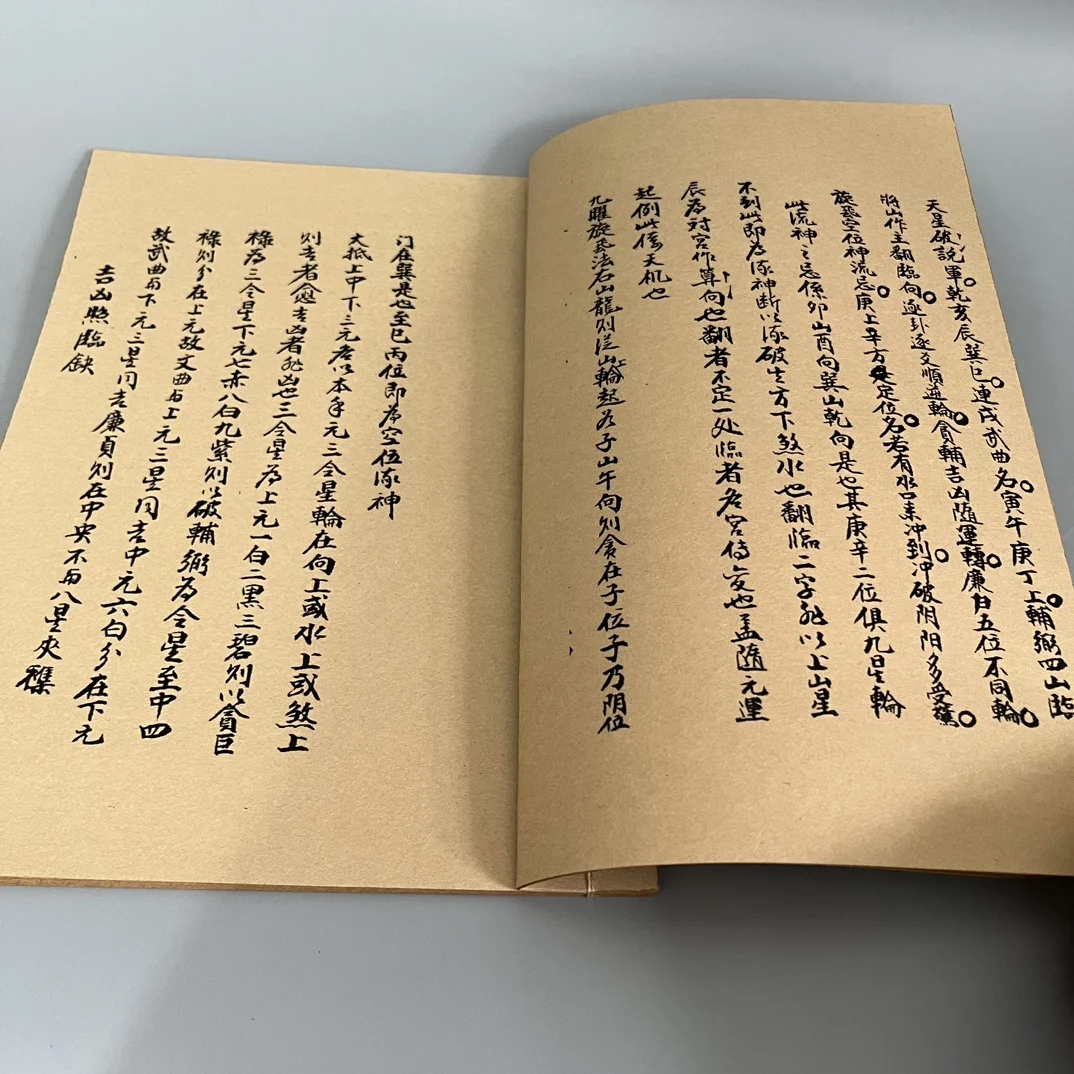 天星破説軍乾亥辰巽巳連戌武曲名寅午庚丁上輔弼四山臨
將山作主翻臨向逐卦逐爻順逆輪貪輔吉凶隨運轉廉貞五位不同輪
旋飛空位神流忌庚上辛方是定位名若有水口来冲到冲破阴阳多受
此流神之忌係卯山酉向巽山乾向是也其庚辛二位俱九星輪
不到此即為流神断以流破生方下煞水也翻臨二字非以上山星
辰為对宫作算向也翻者不定一处臨者各宫傳变也盖隨元運
起例此係天机也
九曜旋飛法右山龍则從山輪起如子山午向则貪在子位子乃阴位
门在巽是也至巳丙位即為空位流神
大抵上中下三元居以本年元三令星輪在向上或水上或煞上
则吉者愈吉凶者非凶也三令星為上元一白二黑三碧则以貪巨
祿為三令星下元七赤八白九紫则以破輔弼為令星至中四
祿则分在上元故文曲与上元三星同吉中元六白分在下元
故武曲与下元三星同吉廉貞则在中央不与八星夾雜
吉凶照臨訣